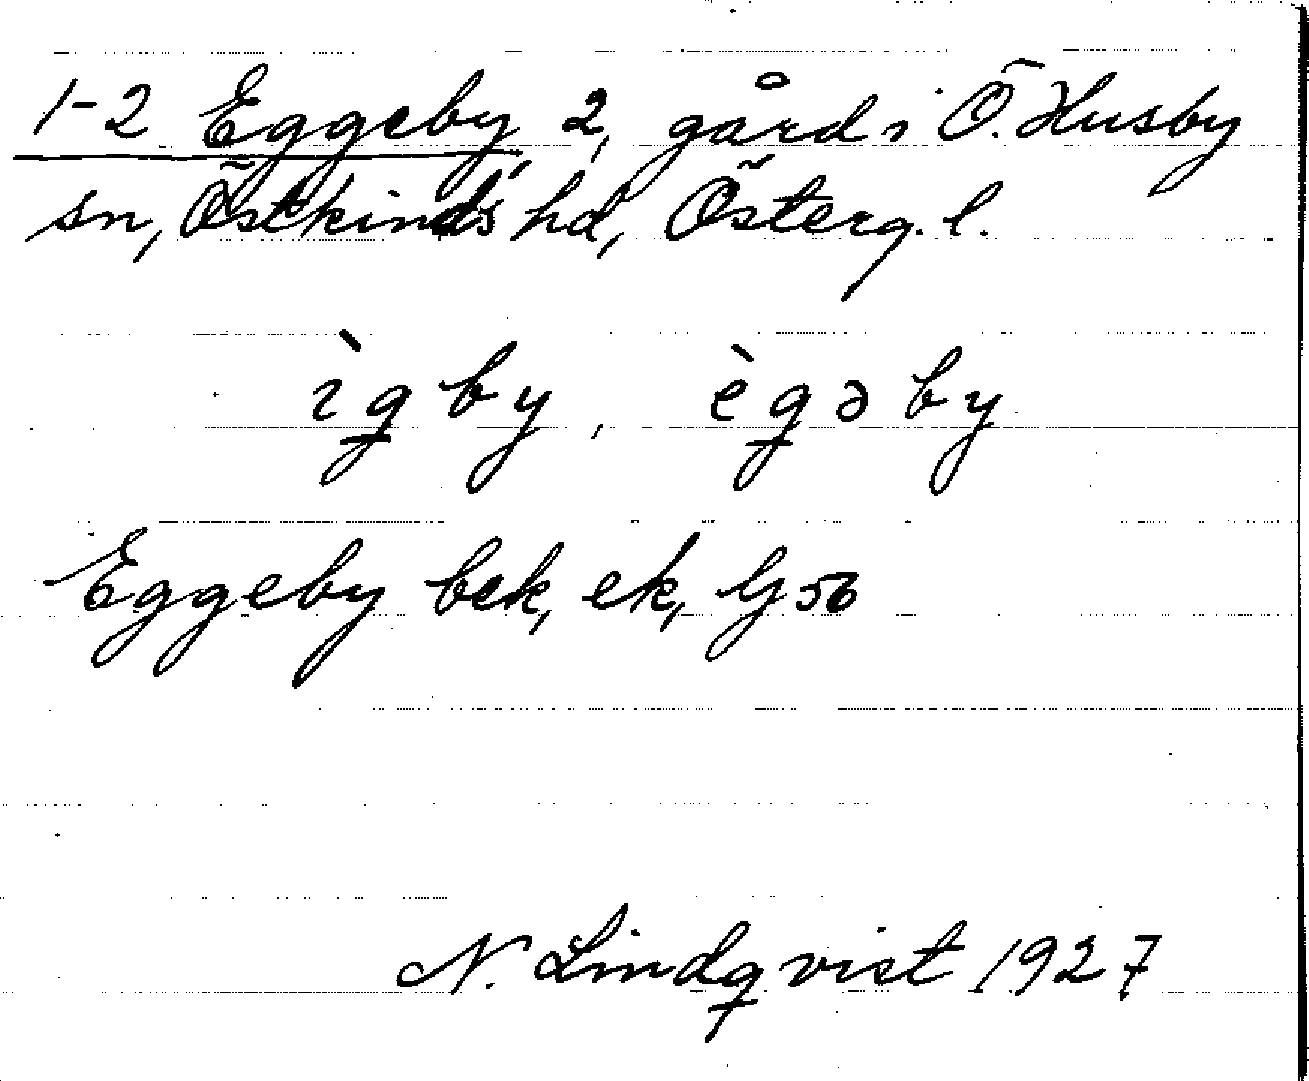 1-2 Eggeby, 2, gård i Ö. Husby
sn, Östkinds hd, Österg. l.
ìgby, ègəby
Eggeby bek, ek, Gs 56
N. Lindqvist 1927